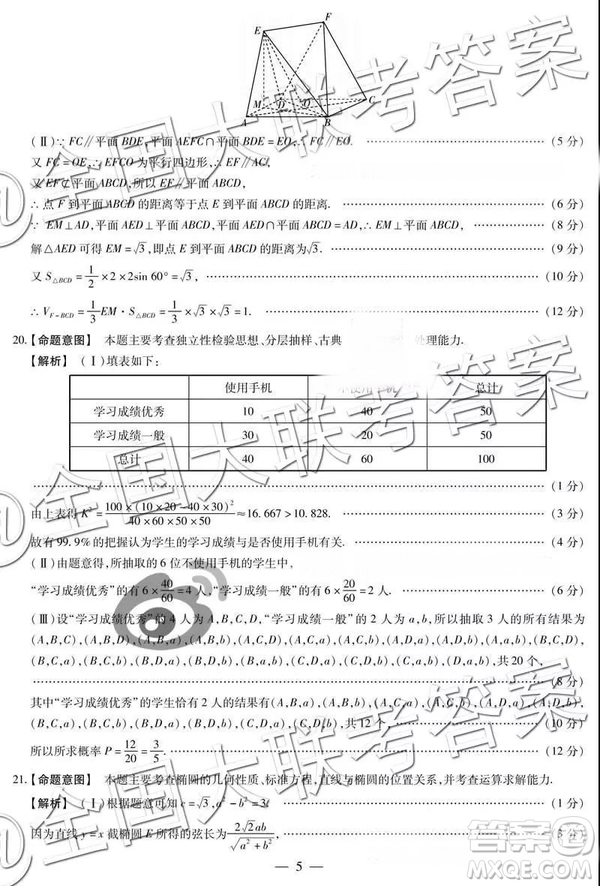 E
F
M
D
O
C
A
B
(Ⅱ)∵ FC∥平面 BDE,平面 AEFC∩平面 BDE = EO,∴ FC∥EO. (5 分)
又 FC = OE,∴ EFCO 为平行四边形,∴ EF∥AC,
又 EF⊄平面 ABCD,所以 EF∥平面 ABCD,
∴ 点 F 到平面 ABCD 的距离等于点 E 到平面 ABCD 的距离. (6 分)
∵ EM⊥AD,平面 AED⊥平面 ABCD,平面 AED∩平面 ABCD = AD,∴ EM⊥平面 ABCD, (8 分)
解△AED 可得 EM = √3,即点 E 到平面 ABCD 的距离为√3. (9 分)
又 S△BCD = 1/2 × 2 × 2sin 60° = √3, (10 分)
∴ V_{F-BCD} = 1/3 EM · S△BCD = 1/3 × √3 × √3 = 1. (12 分)
20.【命题意图】 本题主要考查独立性检验思想、分层抽样、古典 处理能力.
【解析】 (Ⅰ)填表如下:
使用手机 不使用手机 总计
学习成绩优秀 10 40 50
学习成绩一般 30 20 50
总计 40 60 100
(1 分)
由上表得 K² = 100×(10×20−40×30)²/40×60×50×50 ≈16.667>10.828. (3 分)
故有 99.9% 的把握认为学生的学习成绩与是否使用手机有关. (4 分)
(Ⅱ)由题意得,所抽取的 6 位不使用手机的学生中,
“学习成绩优秀”的有 6 × 40/60 = 4 人,“学习成绩一般”的有 6 × 20/60 = 2 人. (6 分)
(Ⅲ)设“学习成绩优秀”的 4 人为 A,B,C,D,“学习成绩一般”的 2 人为 a,b,所以抽取 3 人的所有结果为
(A,B,C),(A,B,D),(A,B,a),(A,B,b),(A,C,D),(A,C,a),(A,C,b),(A,D,a),(A,D,b),(A,a,b),
(B,C,D),(B,C,a),(B,C,b),(B,D,a),(B,D,b),(B,a,b),(C,D,a),(C,D,b),(C,a,b),(D,a,b),共 20 个,
(8 分)
其中“学习成绩优秀”的学生恰有 2 人的结果有(A,B,a),(A,B,b),(A,C,a),(A,C,b),(A,D,a),(A,D,b),
(B,C,a),(B,C,b),(B,D,a),(B,D,b),(C,D,a),(C,D,b),共 12 个 (10 分)
所以所求概率 P = 12/20 = 3/5. (12 分)
21.【命题意图】 本题主要考查椭圆的几何性质、标准方程,直线与椭圆的位置关系,并考查运算求解能力.
【解析】 (Ⅰ)根据题意可知 c = √3, a² − b² = 3① (1 分)
因为直线 y = x 截椭圆 E 所得的弦长为 2√2ab/√(a² + b²), (3 分)
— 5 —
@全国大联考答案
@全国大联考答案